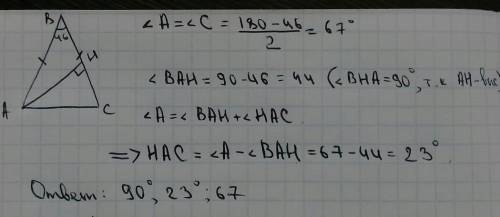 B
46
H
A
C
∠A=∠C = (180-46)/2 = 67°
∠BAH = 90-46 = 44 (∠BHA = 90°, т.к AH-выс)
∠A = ∠BAH + ∠HAC
=> HAC = ∠A - ∠BAH = 67-44 = 23°
Ответ: 90°, 23°; 67